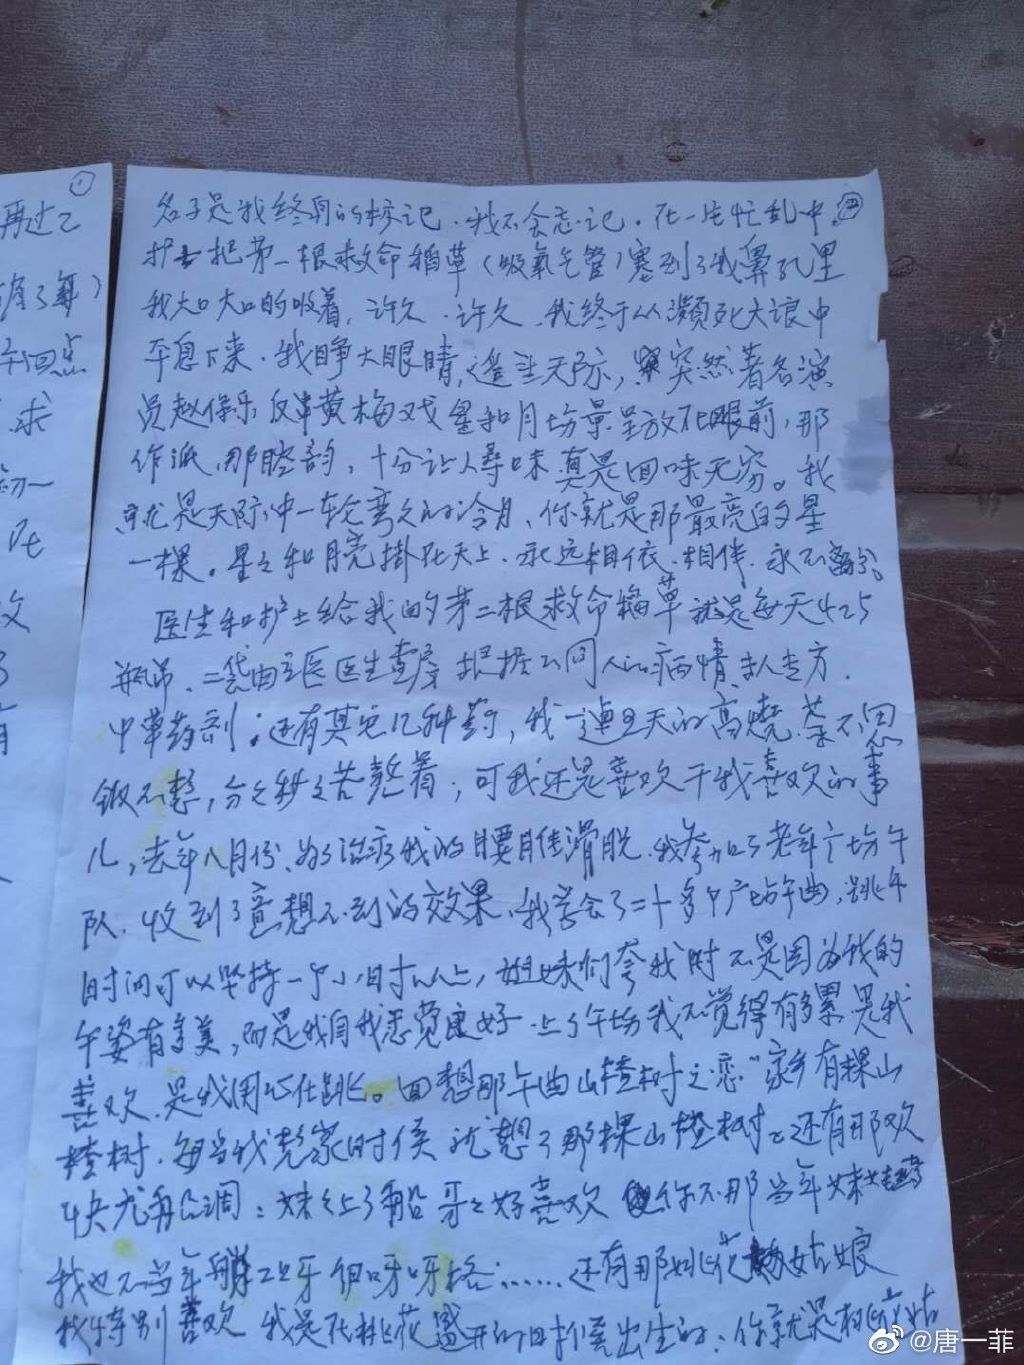 ①
再过乙
年)
午回点
求
②
名子是我终身的标记.我不会忘记.在一片忙乱中
护士把第一根救命稻草(吸氧气管)塞到了我鼻孔里
我大口大口的吸着,许久.许久.我终于从濒死大浪中
平息下来.我睁大眼睛,遥望天际,突然著名演
员赵保乐反串黄梅戏星和月场景呈放在眼前,那
作派,那腔韵,十分让人寻味真是回味无穷。我
就是天际中一轮弯弯的冷月、你就是那最亮的星
一棵。星星和月亮掛在天上.永远相依.相伴.永不离分
医生和护士给我的第二根救命稻草就是每天425
瓶吊、二袋由主医医生查房根据不同人的病情专方
中草药剂;还有其它几种药,我一连 天的高烧.茶不思
饭不想,分分秒秒苦熬着;可我还是喜欢干我喜欢的事
儿,去年八月份.为了治疗我的腰椎滑脱.我参加了老年广场午
队.收到了意想不到的效果.我学会了二十多个广场午曲,跳午
时间可以坚持一个小时以上,姐妹们夸我时不是因为我的
午姿有多美,而是我自我感觉良好.上了午场我不觉得有多累是我
喜欢.是我用心在跳。回想那午曲山楂树之恋"家乡有棵山
楂树.每当我想家的时侯就想了那棵山楂树还有那欢
快 调:妹妹上了船哥哥好喜欢 你不 那当年妹
我也不当年 牙但呀呀 ......还有那桃花 姑娘
我特别喜欢 我是在桃花盛开的日 出生的:你就是
@唐一菲